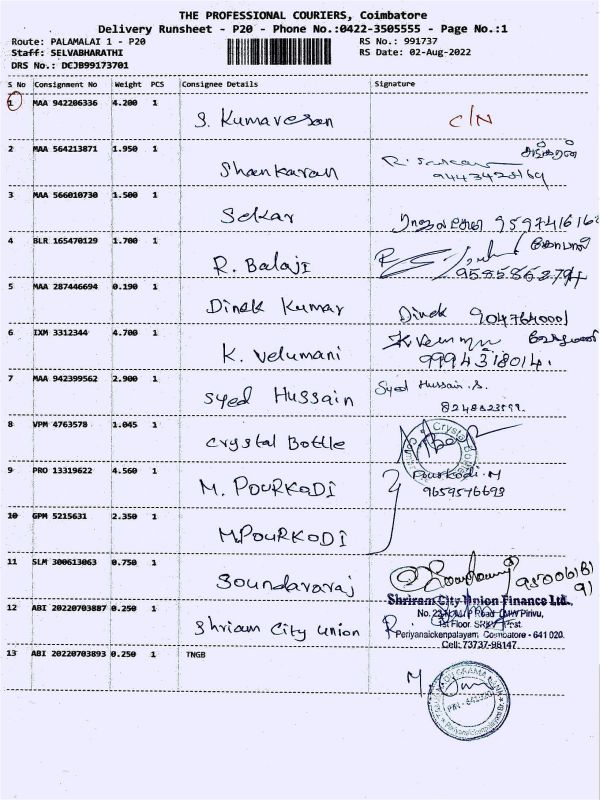 THE PROFESSIONAL COURIERS, Coimbatore
Delivery Runsheet - P20 - Phone No.:0422-3505555 - Page No.:1
Route: PALAMALAI 1 - P20
Staff: SELVABHARATHI
DRS No.: DCJB99173701
RS No.: 991737
RS Date: 02-Aug-2022
S No Consignment No Weight PCS Consignee Details Signature
1 MAA 942206336 4.200 1 S. Kumaresan C/N
2 MAA 564213871 1.950 1 Shankaran
3 MAA 566010730 1.500 1 Sekar
4 BLR 165470129 1.700 1 R. Balaji
5 MAA 287446694 0.190 1 Dinek Kumar Dinek 9047640001
6 IXM 3312344 4.700 1 K. Velumani
9994318014.
7 MAA 942399562 2.900 1 Syed Hussain Syed Hussain. S.
8 VPM 4763578 1.045 1 Crystal Bottle
9 PRO 13319622 4.560 1 M. POURKODI Pourkodi. M
9659576693
10 GPM 5215631 2.350 1 M.POURKODI
11 SLM 300613063 0.750 1 Soundararaj
12 ABI 20220703887 0.250 1 Shriam City Union
Shriram City Union Finance Ltd.,
Periyanaickenpalayam, Coimbatore - 641 020.
Cell: 73737-98147
13 ABI 20220703893 0.250 1 TNGB